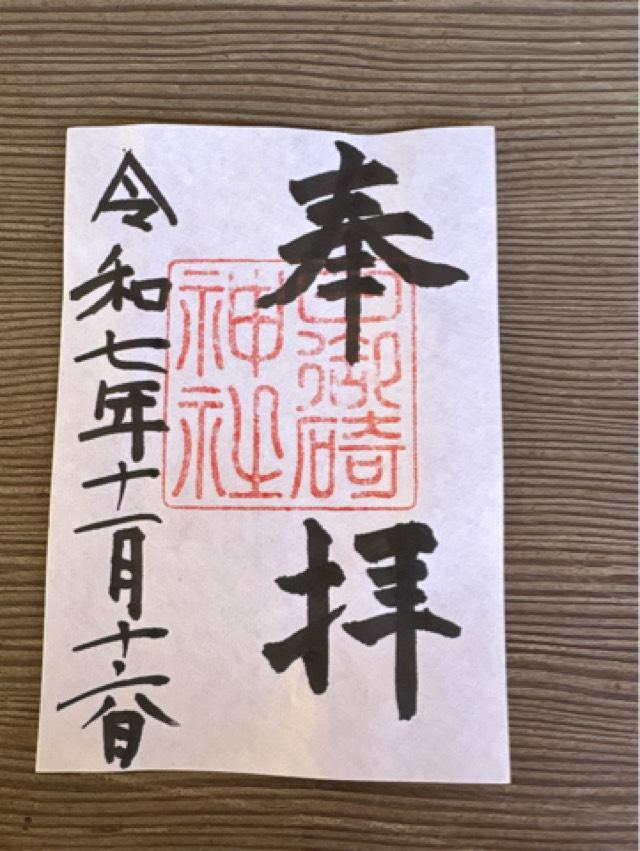 奉拝
日御碕
神社
令和七年十一月十六日